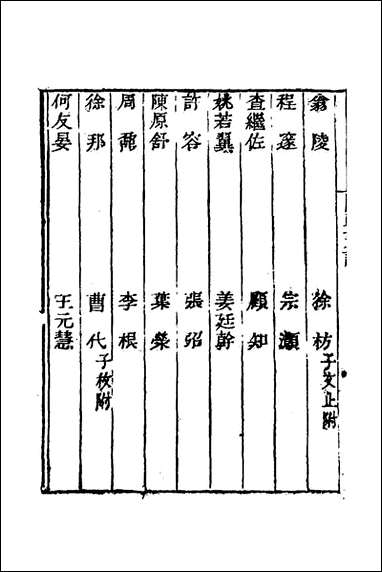 翁陵 徐枋子文止附
程邃 宗灝
查繼佐 顧知
姚若翼 姜廷幹
許容 張𢎞
陳原舒 葉榮
周 李根
徐邦 曹代子枚附
何友晏 王元慧